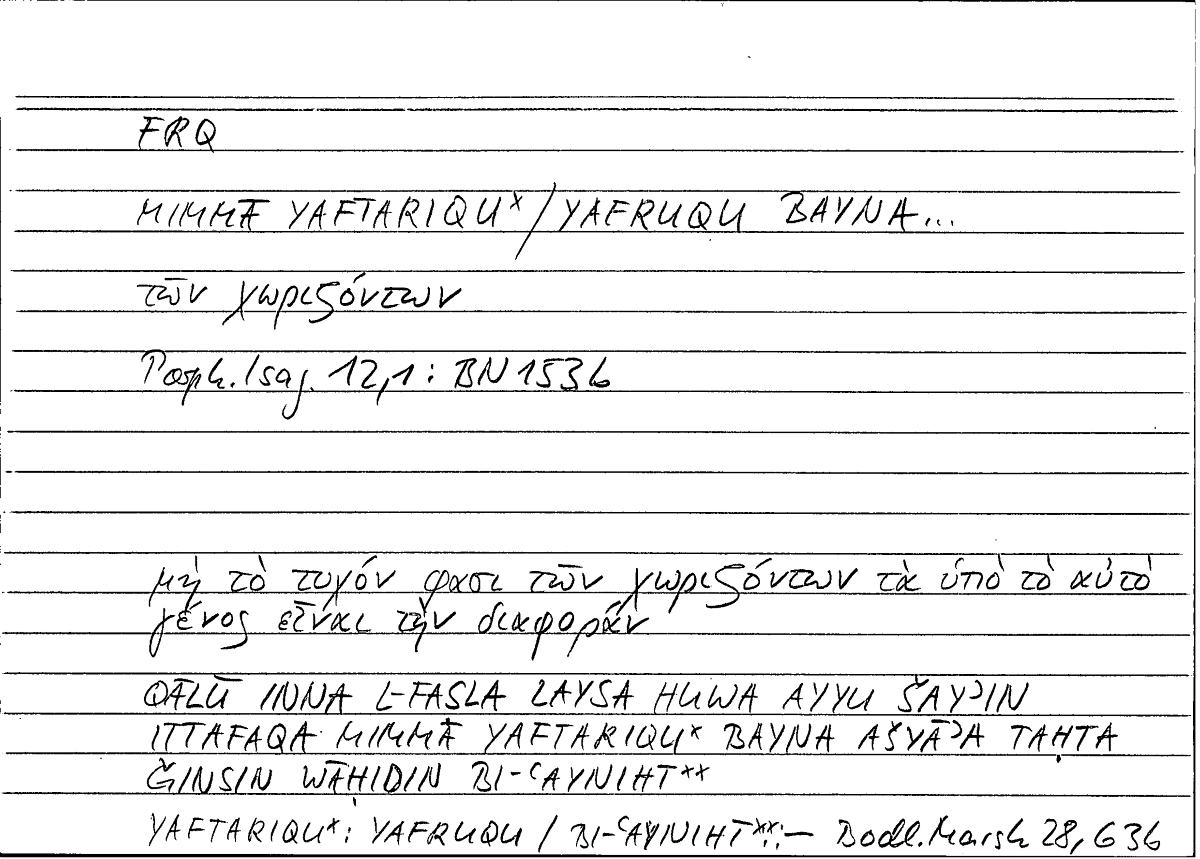 FRQ
MIMMĀ YAFTARIQUˣ/YAFRUQU BAYNA...
τῶν χωριζόντων
Porph. Isag. 12,1: BN 153b
μὴ τὸ τυχόν φασι τῶν χωριζόντων τὰ ὑπὸ τὸ αὐτὸ
γένος εἶναι τὴν διαφοράν
QĀLŪ INNA L-FAṢLA LAYSA HUWA AYYU ŠAYʾIN
ITTAFAQA MIMMĀ YAFTARIQUˣ BAYNA AŠYĀʾA TAḤTA
ǦINSIN WĀḤIDIN BI-ʿAYNIHĪ**
YAFTARIQUˣ: YAFRUQU / BI-ʿAYNIHĪ**:– Bodl. Marsh 28, 63b